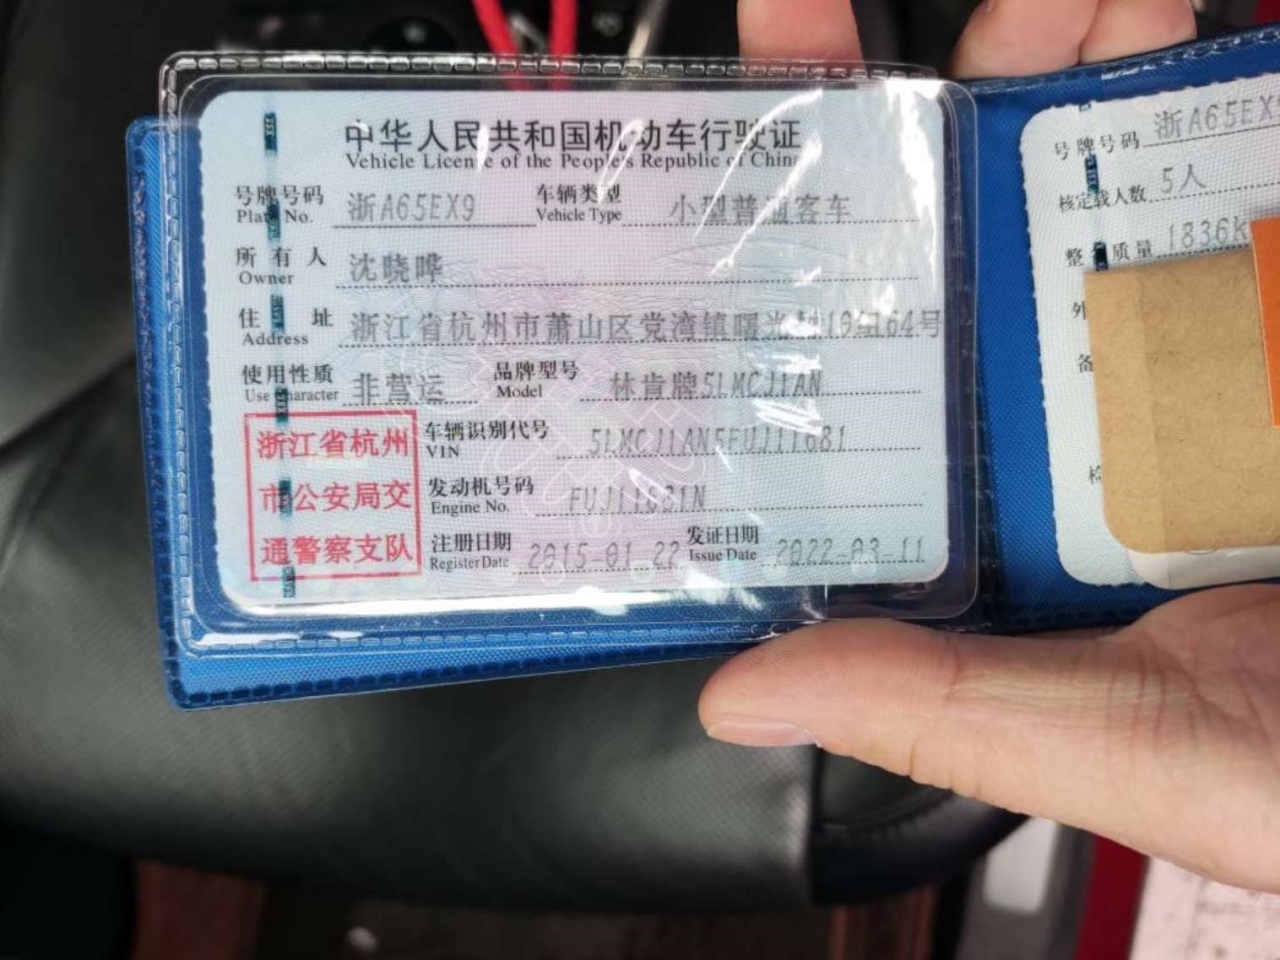 中华人民共和国机动车行驶证
Vehicle License of the People's Republic of China
号牌号码 浙A65EX9 车辆类型 小型普通客车
Plate No. Vehicle Type
所有人 沈晓晔
Owner
住址 浙江省杭州市萧山区党湾镇曙光村19组64号
Address
使用性质 非营运 品牌型号 林肯牌5LMCJ1AN
Use Character Model
浙江省杭州
市公安局交
通警察支队
车辆识别代号 5LMCJ1AN5FUJ11681
VIN
发动机号码 FUJ11681N
Engine No.
注册日期 2015-01-22 发证日期 2022-03-11
Register Date Issue Date
号牌号码 浙A65EX
核定载人数 5人
整备质量 1836k
外
备
检